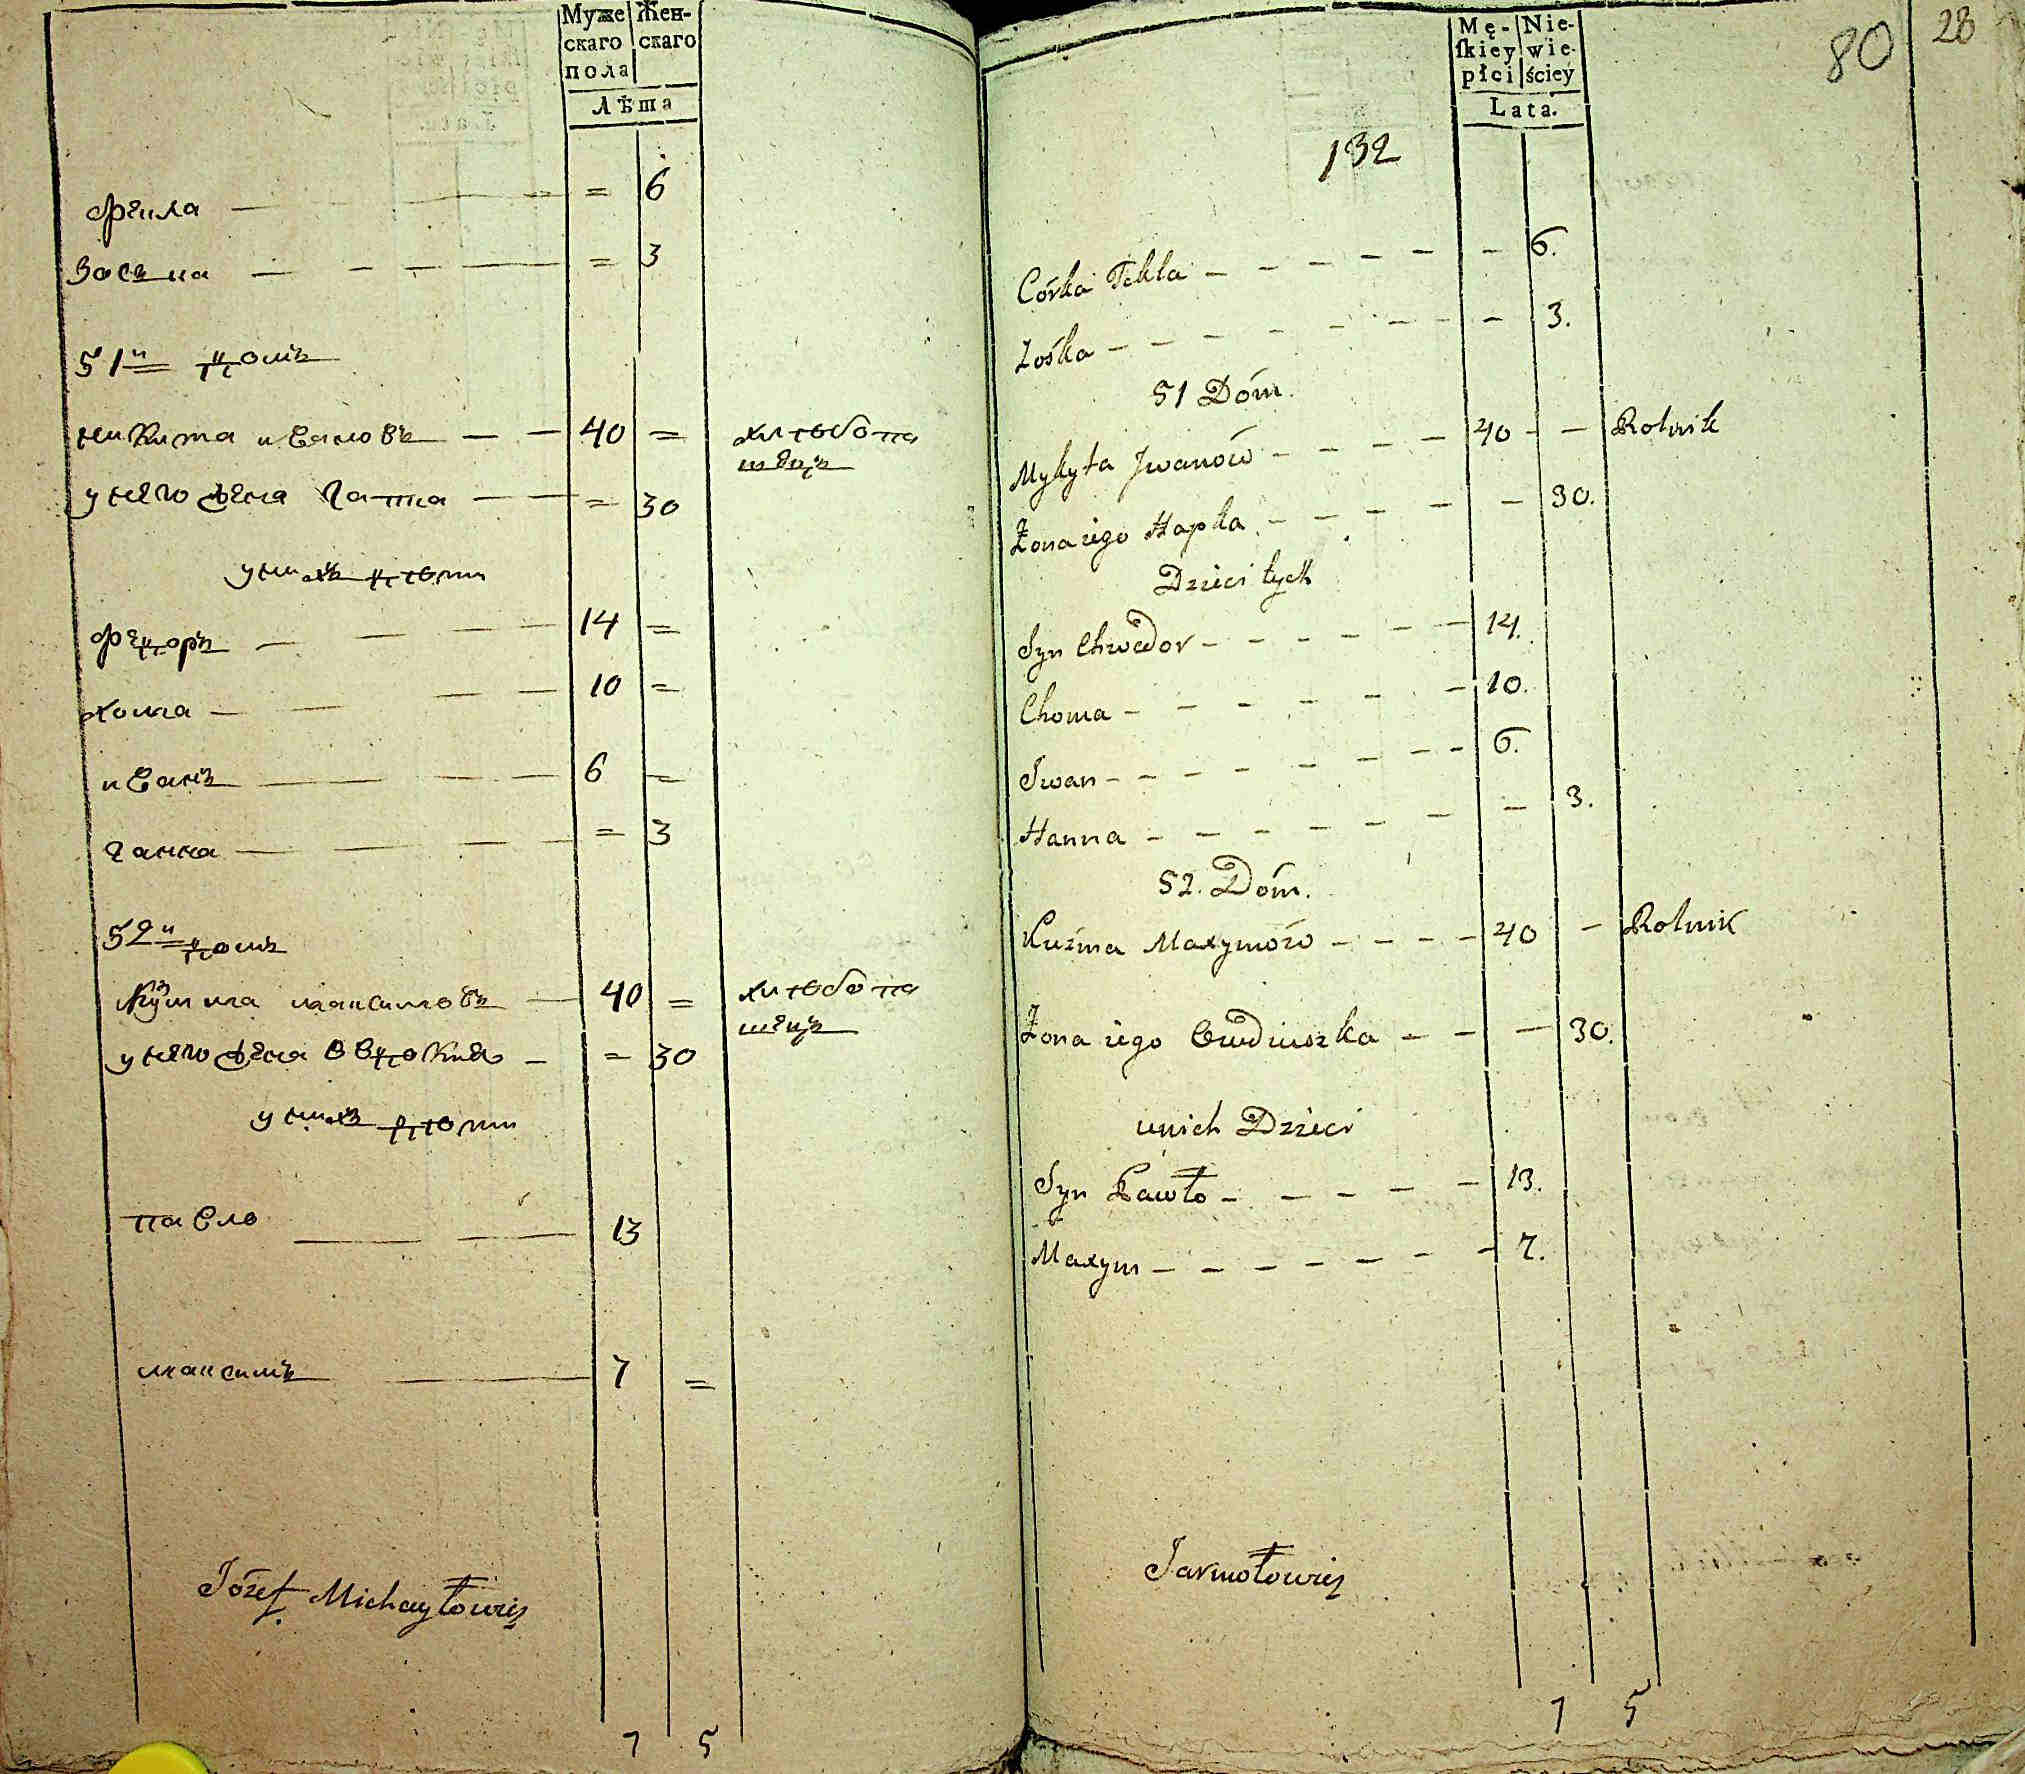 Муже Жен-
скаго скаго
пола
Лѣта
Фекла — = 6
Зосъка — = 3
51й домъ
Никита ивановъ — 40 = хлѣбопа
шецъ
у него жена гапка — = 30
у нихъ дѣти
Федоръ — 14 =
хома — 10 =
иванъ — 6 =
ганна — = 3
52й домъ
Кузма максимовъ — 40 = хлѣбопа
шецъ
у него жена Овдокия — = 30
у нихъ дѣти
павло — 13
максимъ — 7 =
Józef Michayłowicz
7 5
80 28
Mę- Nie-
ſkiey wie-
płci ściey
Lata.
132
Córka Tekla - - - - - - 6.
Zośka - - - - - - - 3.
51 Dóm.
Mykyta Jwanów - - - - 40 - - Rolnik
Żona iego Hapka - - - - - 30.
Dzieci tych
Syn Chwedor - - - - - - 14.
Choma - - - - - - 10.
Jwan - - - - - - - 6.
Hanna - - - - - - - 3.
52. Dóm.
Kuźma Maxymów - - - - 40 - Rolnik
Żona iego Owdiuszka - - - 30.
u nich Dzieci
Syn Pawło - - - - - 13.
Maxym - - - - - - - 7.
Jarmołowicz
7 5